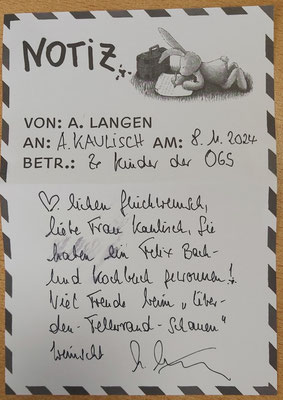 NOTIZ
VON: A. LANGEN
AN: A. KAULISCH AM: 8.11.2024
BETR.: & Kinder der OGS
♡lichen Glückwunsch,
liebe Frau Kaulisch, Sie
haben ein Felix Back-
und Kochbuch gewonnen!
Viel Freude beim „Über-
den-Tellerrand-Schauen"
wünscht